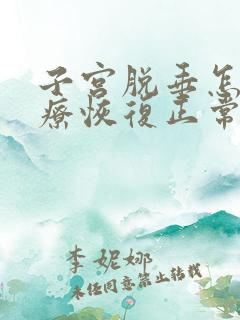 子宫脱垂怎
疗恢复正常
李妮娜
未经同意禁止转载